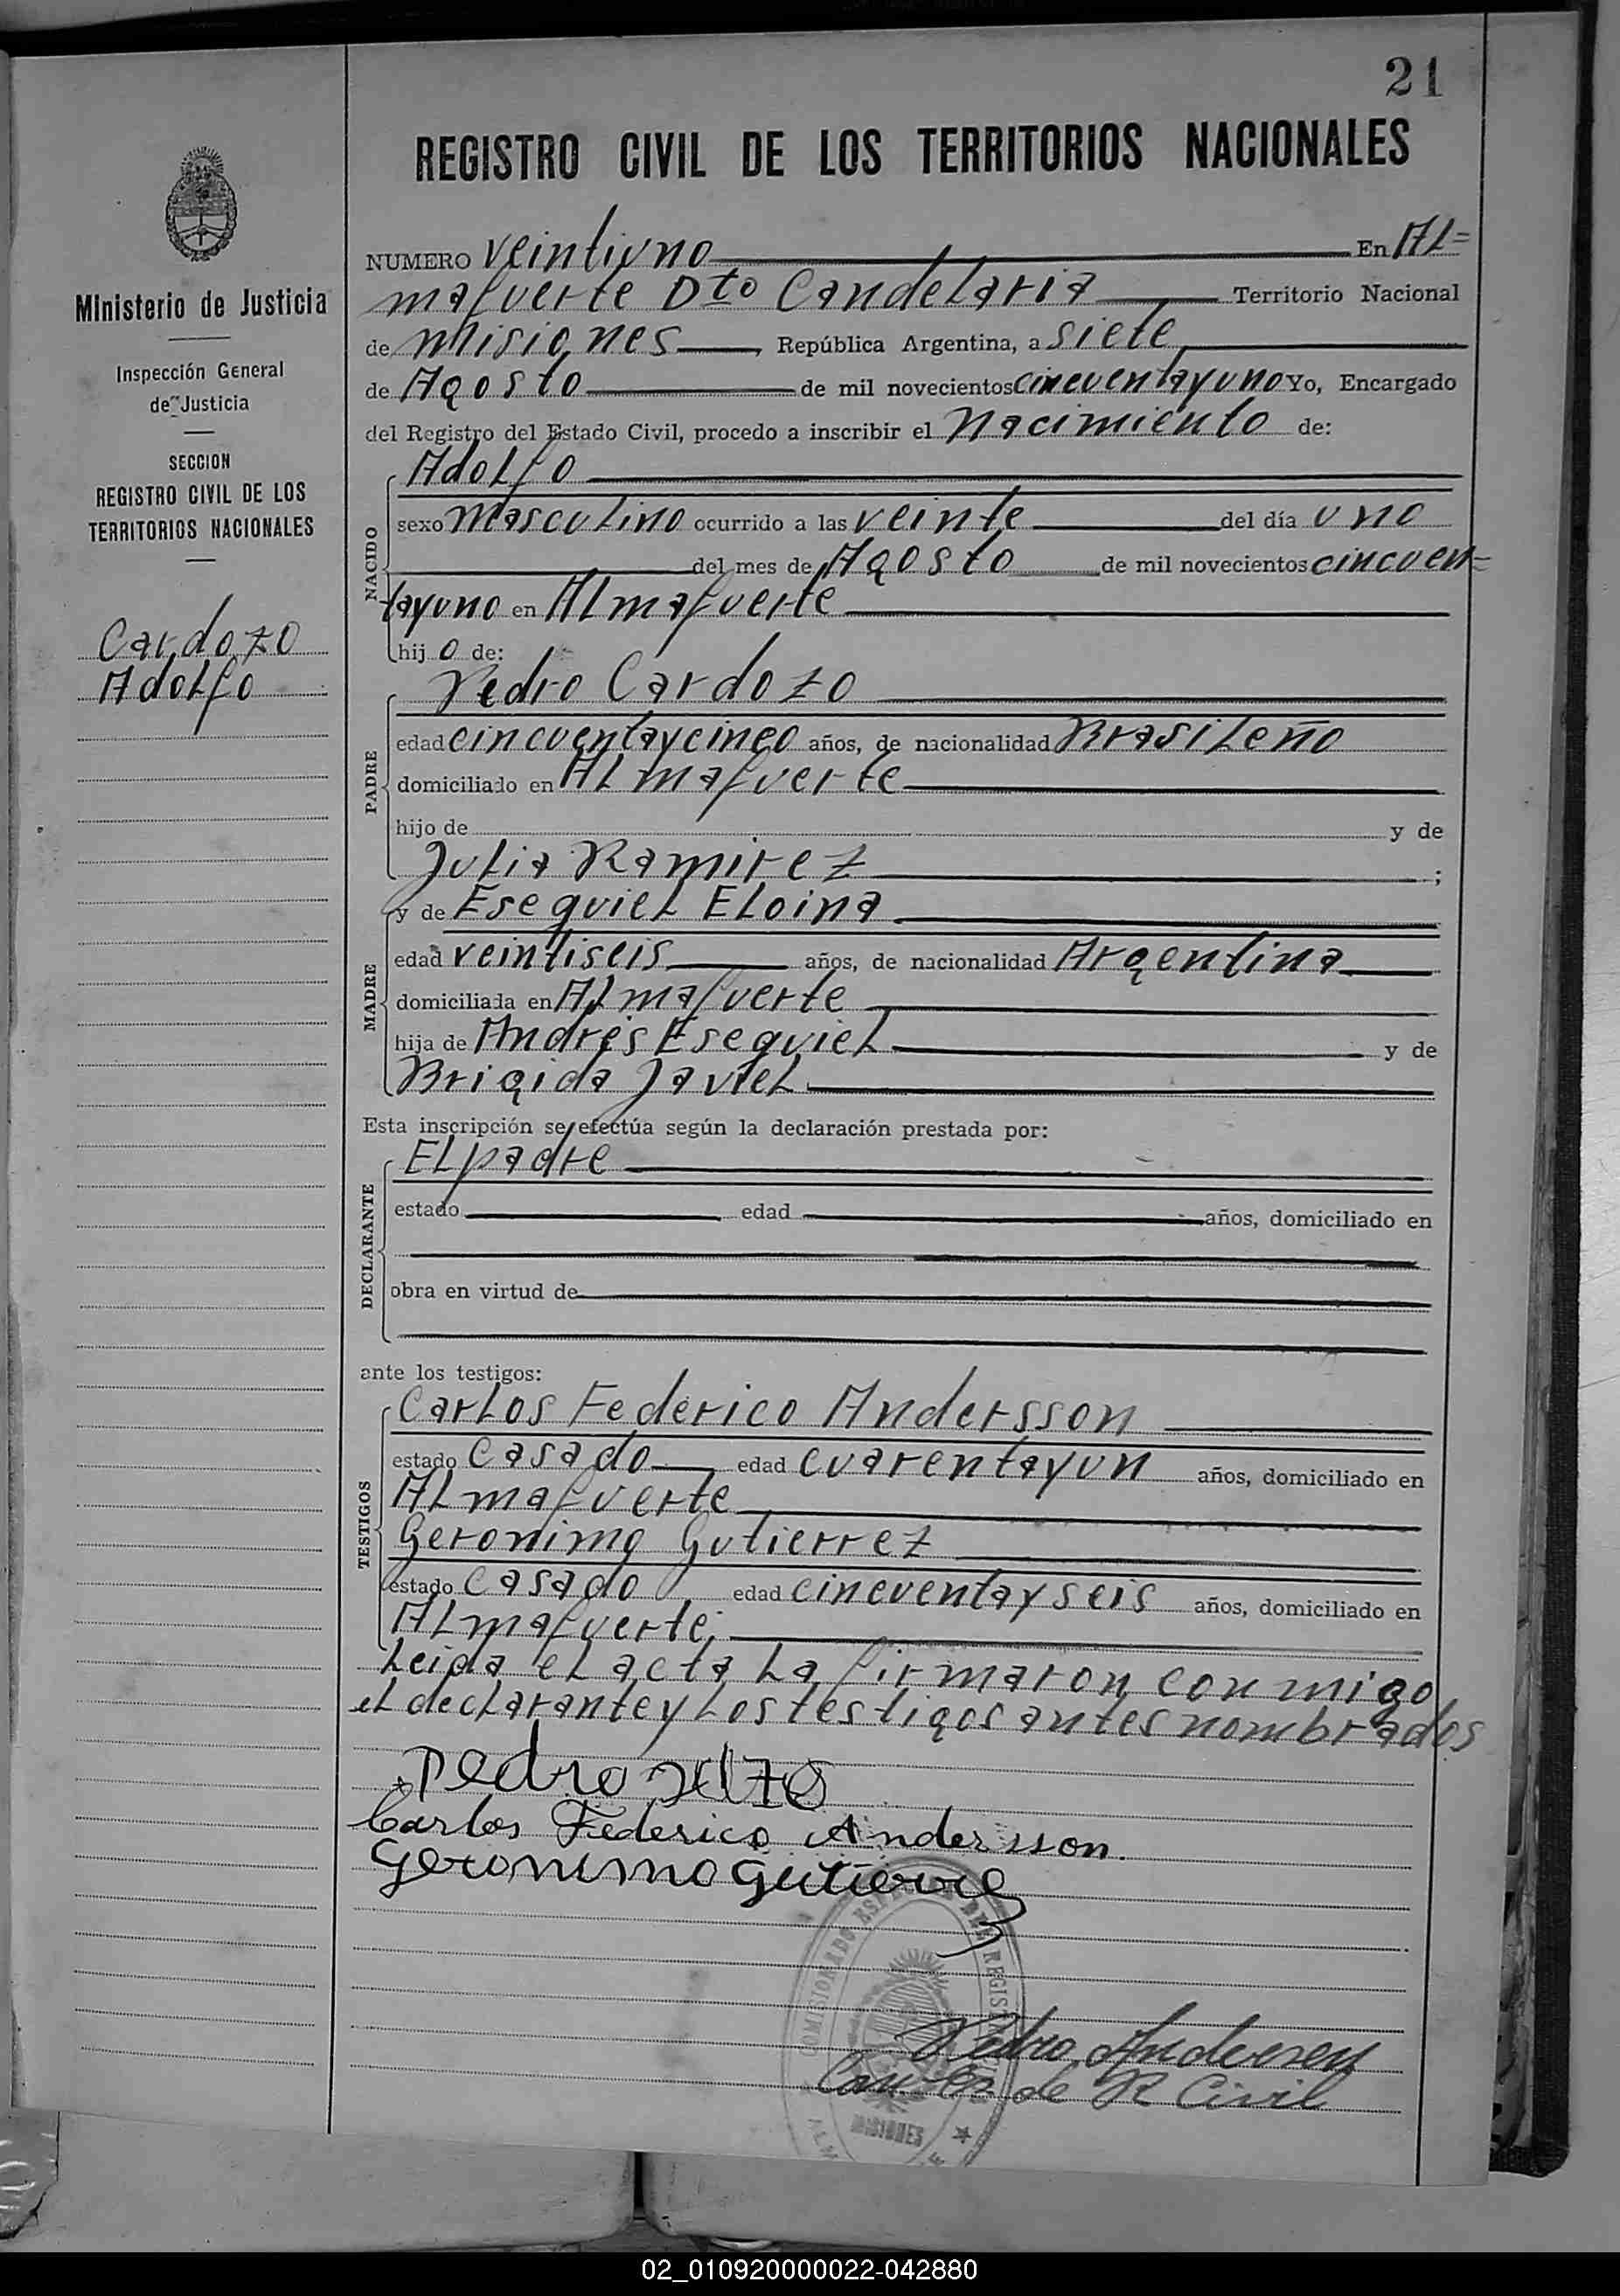 21
REGISTRO CIVIL DE LOS TERRITORIOS NACIONALES
Ministerio de Justicia
Inspección General
de Justicia
SECCION
REGISTRO CIVIL DE LOS
TERRITORIOS NACIONALES
Cardozo
Adolfo
NUMERO veintiuno En Al=
mafuerte Dto Candelaria Territorio Nacional
de Misiones, República Argentina, a siete
de Agosto de mil novecientos cincuentayuno Yo, Encargado
del Registro del Estado Civil, procedo a inscribir el Nacimiento de:
NACIDO
Adolfo
sexo Masculino ocurrido a las veinte del día uno
del mes de Agosto de mil novecientos cincuen=
tayuno en Almafuerte
hijo de:
PADRE
Pedro Cardozo
edad cincuentaycinco años, de nacionalidad Brasileño
domiciliado en Almafuerte
hijo de y de
Julia Ramirez ;
MADRE
y de Esequiel Eloina
edad veintiseis años, de nacionalidad Argentina
domiciliada en Almafuerte
hija de Andrés Esequiel y de
Brigida Javiel
Esta inscripción se efectúa según la declaración prestada por:
DECLARANTE
El padre
estado edad años, domiciliado en
obra en virtud de
ante los testigos:
TESTIGOS
Carlos Federico Andersson
estado Casado edad cuarentayun años, domiciliado en
Almafuerte
Geronimo Gutierrez
estado Casado edad cincuentayseis años, domiciliado en
Almafuerte;
Leida el acta la firmaron conmigo
el declarante y los testigos antes nombrados
Pedro
Carlos Federico Andersson.
Geronimo Gutierrez
COMISIONADO DEL REGIS
MISIONES
Pedro Andersen
de R Civil
02_010920000022-042880